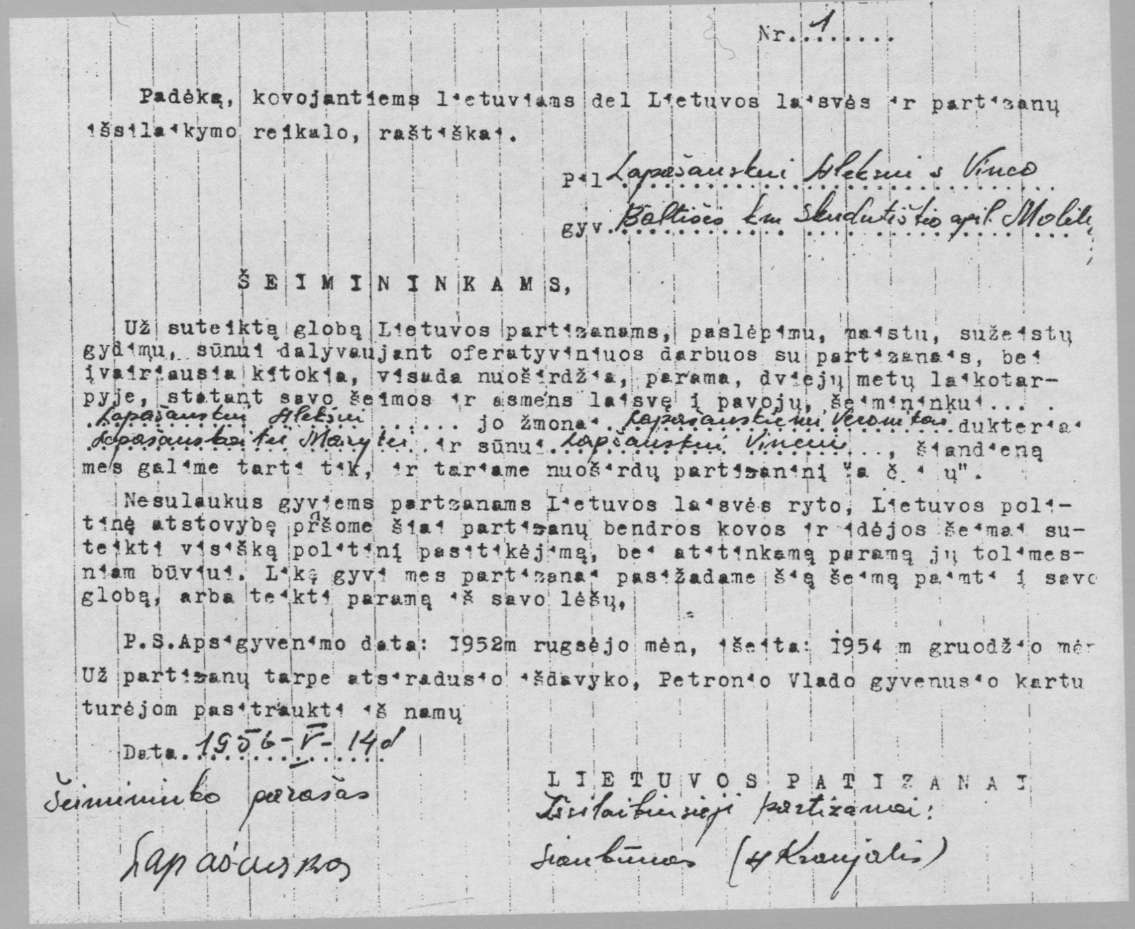 Nr. 1
Padėką, kovojantiems lietuviams del Lietuvos laisvės ir partizanų
išsilaikymo reikalo, raštiškai.
Pil Lapašauskui Aleksui s Vinco
gyv. Baltišės km Skudutiškio apil. Molėt
ŠEIMININKAMS,
Už suteiktą globą Lietuvos partizanams, paslėpimu, maistu, sužeistų
gydimu, sūnui dalyvaujant oferatyviniuos darbuos su partizanais, bei
įvairiausia kitokia, visada nuoširdžia, parama, dviejų metų laikotar-
pyje, statant savo šeimos ir asmens laisvę į pavojų, šeimininkui....
Lapašauskui Aleksui...... jo žmonai Lapašauskienei Veronikai dukteriai
Lapašauskaitei Marytei ir sūnui Lapšauskui Vincui..., šiandieną
mes galime tarti tik, ir tariame nuoširdų partizaninį "a č i ų".
Nesulaukus gyviems partzanams Lietuvos laisvės ryto, Lietuvos poli-
tinę atstovybę pršome šiai partizanų bendros kovos ir idėjos šeimai su-
teikti visišką politinį pasitikėjimą, bei atitinkamą paramą jų tolimes-
niam būviui. Likę gyvi mes partizanai pasižadame šią šeimą paimti į savo
globą, arba teikti paramą iš savo lėšų,
P.S.Apsigyvenimo data: 1952m rugsėjo mėn, išeita: 1954 m gruodžio mėn
Už partizanų tarpe atsiradusio išdavyko, Petronio Vlado gyvenusio kartu
turėjom pasitraukti iš namų
Data. 1956-V-14d
LIETUVOS PATIZANAI
Šeimininko parašas
Išsilaikiusieji partizanai:
Lapašauskas
Siaubūnas (A Kraujalis)